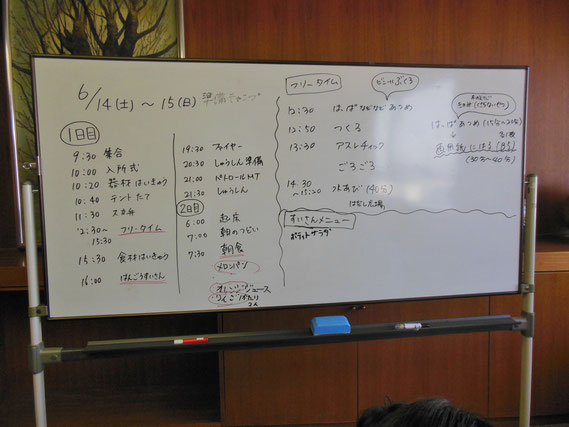 6/14(土)～15(日) 準備キャンプ
1日目
9:30 集合
10:00 入所式
10:20 器材はいきゅう
10:40 テントたて
11:30 スカ弁
12:30～15:30 フリータイム
15:30 食材はいきゅう
16:00 はんごうすいさん
19:30 ファイヤー
20:30 しゅうしん準備
21:00 パトロールMT
21:30 しゅうしん
2日目
6:00 起床
7:00 朝のつどい
7:30 朝食
メロンパン
オレンジジュース
りんご
フリータイム
ビニールぶくろ
12:30 はっぱなどなどあつめ
12:50 つくる
13:30 アスレチィック
ごろごろ
14:30～15:20 水あそび(40分)
はだし広場
はっぱあつめ
画用紙にはる(B5)
(30分～40分)
すいさんメニュー
ポテトサラダ